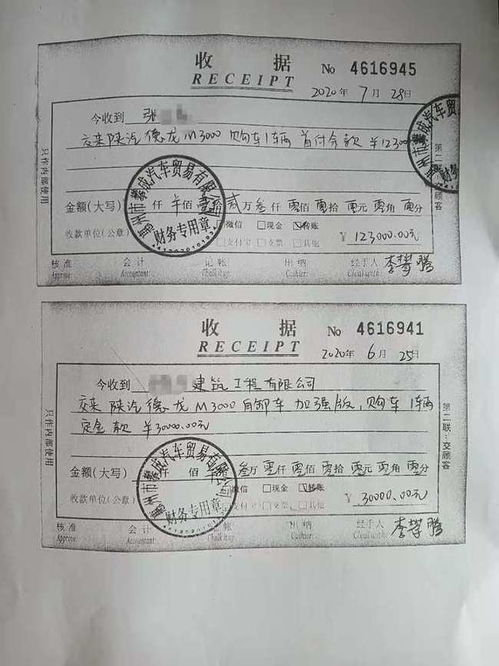 收 据 No 4616945
RECEIPT 2020 年 7 月 28 日
今收到 张
交来 陕汽德龙M3000 购车1辆 首付余款 ¥123000
金额(大写) 仟 佰 壹拾 贰万 叁仟 零佰 零拾 零元 零角 零分
微信 □现金 ☑转账
收款单位(公章) □支付宝 □支票 □其他 ¥ 123000.00元
核 准 会 计 记 帐 出 纳 经手人 李攀腾
Approve Accountant Cashier
只作内部使用
第二联:交顾客
州市攀成汽车贸易有限公司
财务专用章
收 据 No 4616941
RECEIPT 2020 年 6 月 25 日
今收到 建筑工程有限公司
交来 陕汽德龙M3000自卸车加强版,购车1辆
定金款 ¥30000.00元
金额(大写) 叁万 零仟 零佰 零拾 零元 零角 零分
微信 □现金 ☑转账
收款单位(公章) □支付宝 □支票 □其他 ¥ 30000.00元
核 准 会 计 记 帐 出 纳 经手人 李攀腾
Approve Accountant Cashier
只作内部使用
第二联:交顾客
州市攀成汽车贸易有限公司
财务专用章